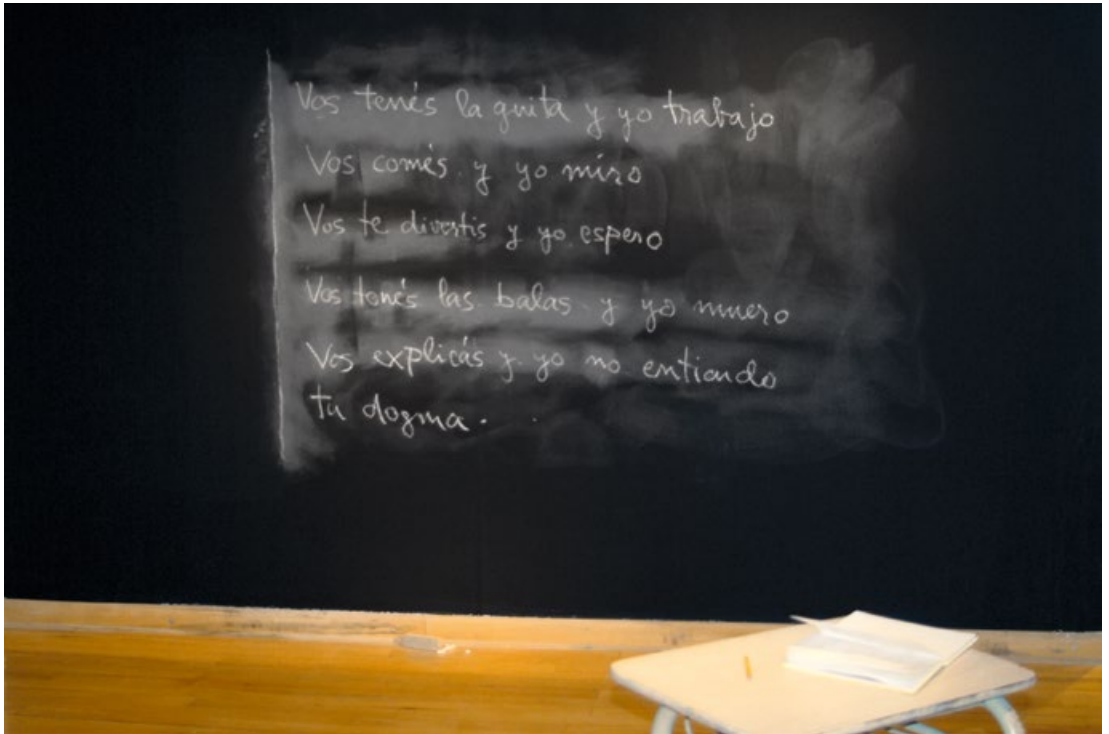 Vos tenés la guita y yo trabajo
Vos comés y yo miro
Vos te divertis y yo espero
Vos tenés las balas y yo muero
Vos explicás y yo no entiendo
tu dogma.